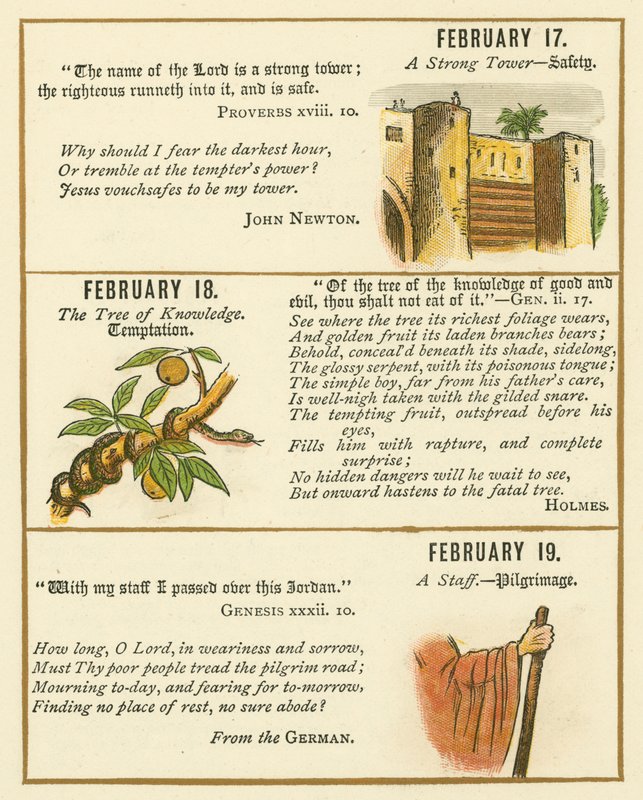 FEBRUARY 17.
A Strong Tower—Safety.
"The name of the Lord is a strong tower;
the righteous runneth into it, and is safe.
PROVERBS xviii. 10.
Why should I fear the darkest hour,
Or tremble at the tempter's power?
Jesus vouchsafes to be my tower.
JOHN NEWTON.
FEBRUARY 18.
The Tree of Knowledge.
Temptation.
"Of the tree of the knowledge of good and
evil, thou shalt not eat of it."—GEN. ii. 17.
See where the tree its richest foliage wears,
And golden fruit its laden branches bears;
Behold, conceal'd beneath its shade, sidelong,
The glossy serpent, with its poisonous tongue;
The simple boy, far from his father's care,
Is well-nigh taken with the gilded snare.
The tempting fruit, outspread before his
eyes,
Fills him with rapture, and complete
surprise;
No hidden dangers will he wait to see,
But onward hastens to the fatal tree.
HOLMES.
FEBRUARY 19.
A Staff.—Pilgrimage.
"With my staff I passed over this Jordan."
GENESIS xxxii. 10.
How long, O Lord, in weariness and sorrow,
Must Thy poor people tread the pilgrim road;
Mourning to-day, and fearing for to-morrow,
Finding no place of rest, no sure abode?
From the GERMAN.